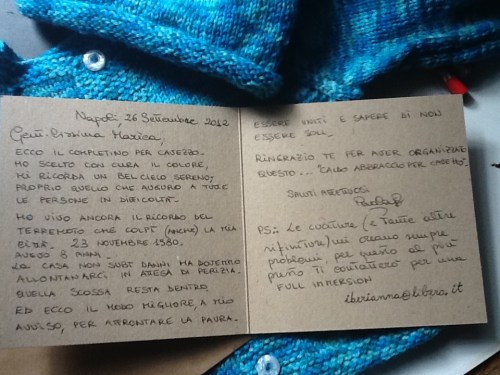 Napoli, 26 Settembre 2012
Gent.lissima Marisa,
ECCO IL COMPLETINO PER CAVEZZO.
HO SCELTO CON CURA IL COLORE,
MI RICORDA UN BEL CIELO SERENO;
PROPRIO QUELLO CHE AUGURO A TUTTE
LE PERSONE IN DIFFICOLTÀ.
HO VIVO ANCORA IL RICORDO DEL
TERREMOTO CHE COLPÌ (ANCHE) LA MIA
CITTÀ. 23 NOVEMBRE 1980.
AVEVO 8 ANNI.
LA CASA NON SUBÌ DANNI, MA DOVEMMO
ALLONTANARCI IN ATTESA DI PERIZIA.
QUELLA SCOSSA RESTA DENTRO,
ED ECCO IL MODO MIGLIORE, A MIO
AVVISO, PER AFFRONTARE LA PAURA.
ESSERE UNITI E SAPERE DI NON
ESSERE SOLI.
RINGRAZIO TE PER AVER ORGANIZZATO
QUESTO... "CALDO ABBRACCIO PER CAVEZZO".
SALUTI AFFETTUOSI
PS: Le cuciture (e tante altre
rifiniture) mi creano sempre
problemi, per questo al più
presto ti contatterò per una
FULL IMMERSION
iberianna@libero.it